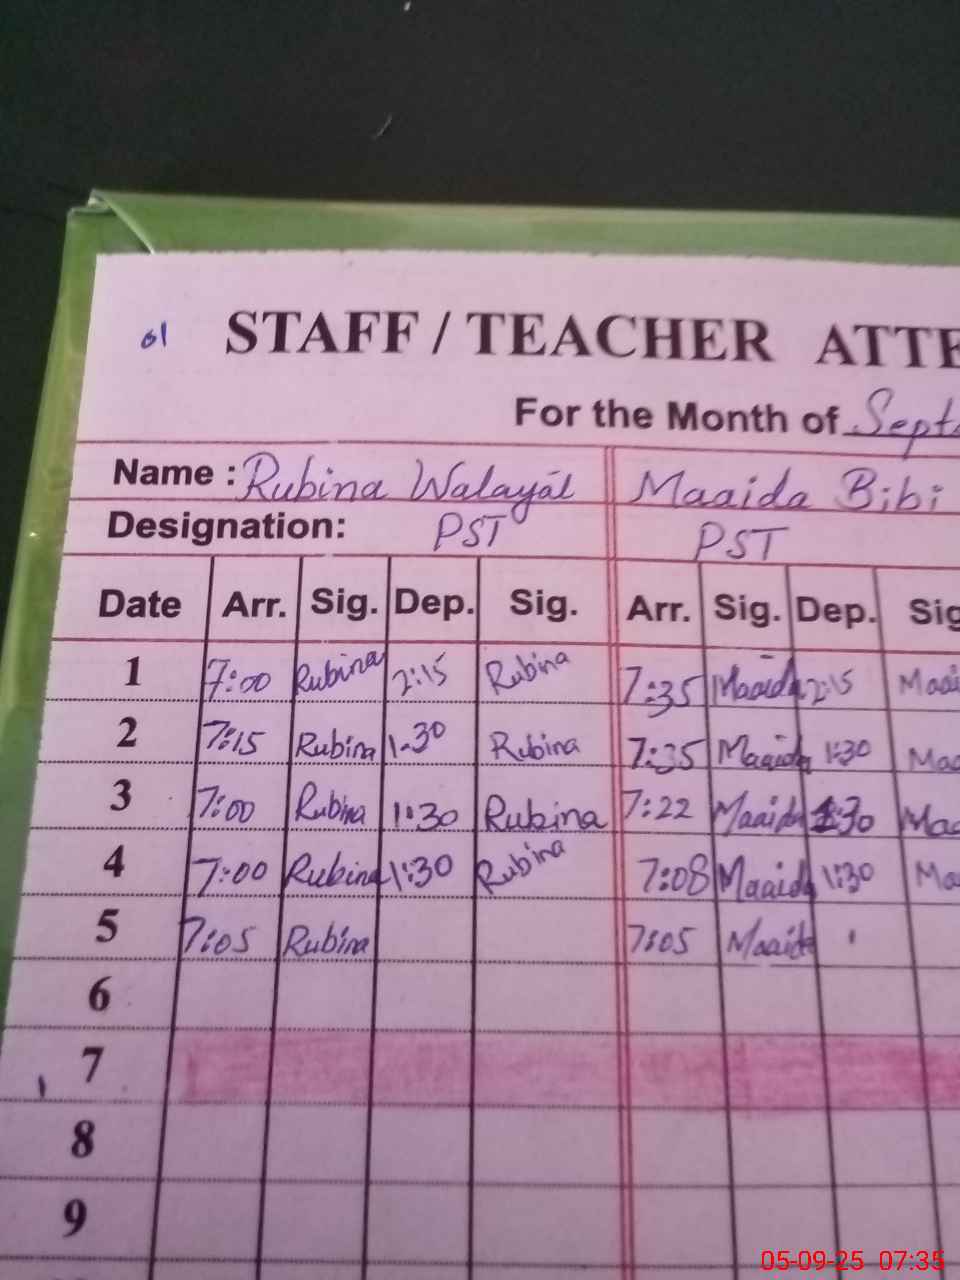 01 STAFF / TEACHER ATTE
For the Month of Sept
Name : Rubina Walayat Maaida Bibi
Designation: PST PST
Date Arr. Sig. Dep. Sig. Arr. Sig. Dep. Sig
1 7:00 Rubina 2:15 Rubina 7:35 Maaida 2:15 Maai
2 7:15 Rubina 1-30 Rubina 7:35 Maaida 1:30 Maa
3 7:00 Rubina 1:30 Rubina 7:22 Maaida 1:30 Maa
4 7:00 Rubina 1:30 Rubina 7:08 Maaida 1:30 Ma
5 7:05 Rubina 7:05 Maaida
6
7
8
9
05-09-25 07:35